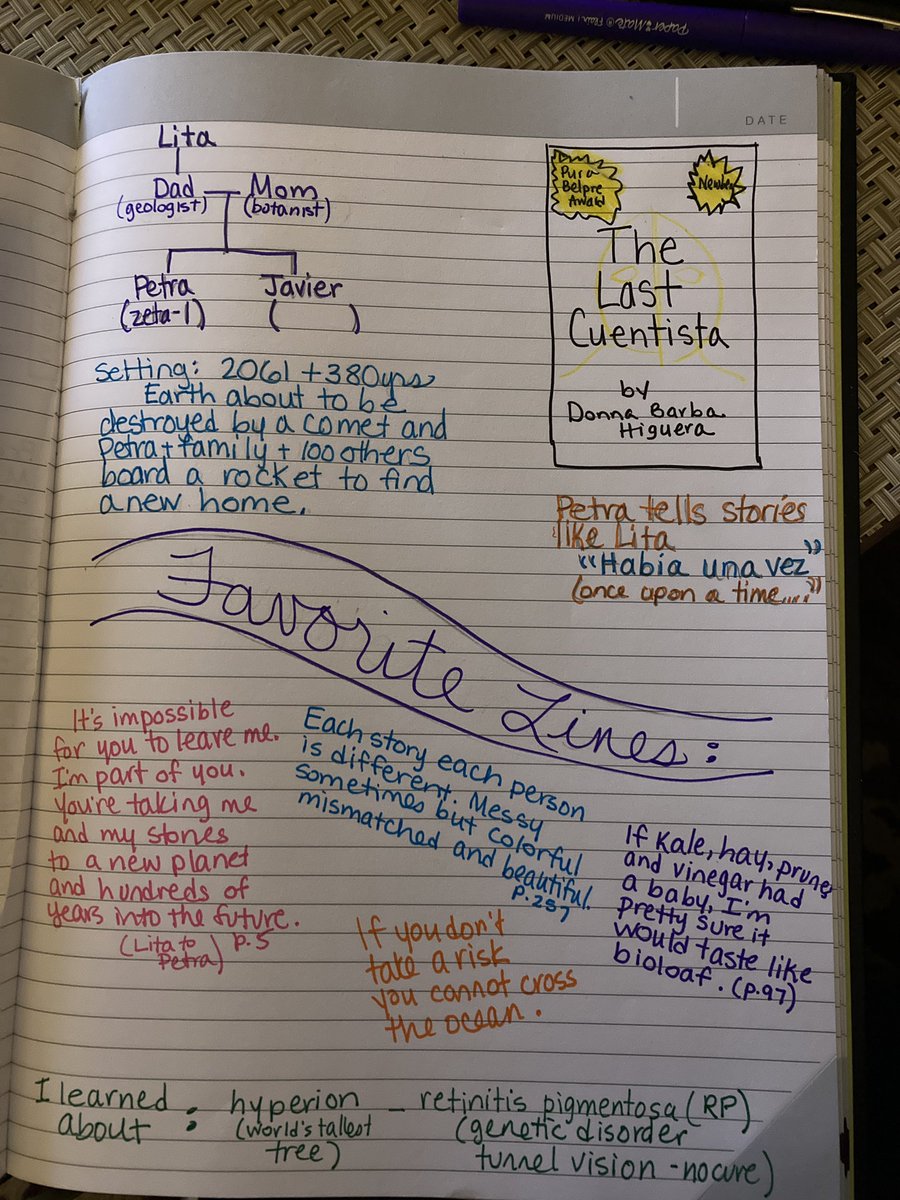 Paper Mate Flair MEDIUM
DATE
Lita
Dad Mom
(geologist) (botanist)
Petra Javier
(zeta-1) ( )
Setting: 2061 + 380yrs
Earth about to be
destroyed by a comet and
Petra + family + 100 others
board a rocket to find
a new home.
Pura
Belpre
Award
The
Last
Cuentista
by
Donna Barba
Higuera
Petra tells stories
like Lita
"Habia una vez"
(once upon a time....")
Favorite Lines:
It's impossible
for you to leave me.
I'm part of you.
You're taking me
and my stories
to a new planet
and hundreds of
years into the future.
(Lita to Petra) p.5
Each story each person
is different. Messy
sometimes but colorful
mismatched and beautiful.
p.257
If Kale, hay, prunes
and vinegar had
a baby, I'm
pretty sure it
would taste like
bioloaf. (p.97)
If you don't
take a risk
you cannot cross
the ocean.
I learned about : hyperion
(world's tallest
tree)
- retinitis pigmentosa (RP)
(genetic disorder
tunnel vision - no cure)